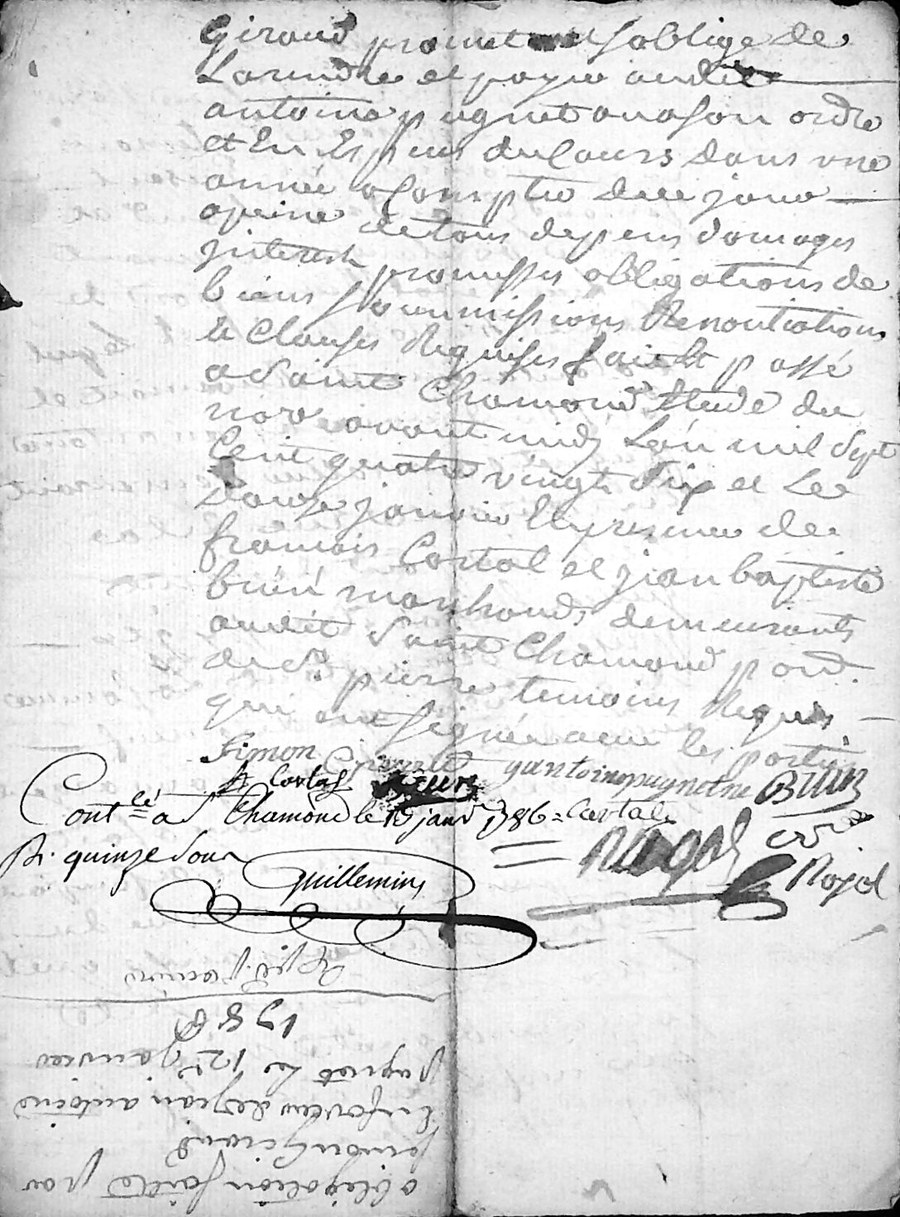 Giraud promet et s'oblige de
La rendre et payer audit
antoine pugnet ou a son ordre
et En Espèces du Cours dans une
année a Compter de ce jour
a peine de tous depens domages
Interest promesses obligations de
biens Soumissions Renontiations
et Clauses Requises fait et passé
a Saint Chamond Etude du
nore avant midy L'an mil Sept
Cent quatre vingt Six et Le
Douze janvier En presence de
francois Cortal et jean baptiste
brun marchands demeurants
audit Saint Chamond paroisse
de St pierre temoins Requis
qui ont Signé avec les parties
Simon Giraud antoine pugnet Brun
Cortal
Contlé a St Chamond le 19 janvr 1786 Cortal
R. quinze Sous
Guillemin
obligation faitte par
simon Giraud
En faveur de jean antoine
pugnet Le 12e janvier
1786